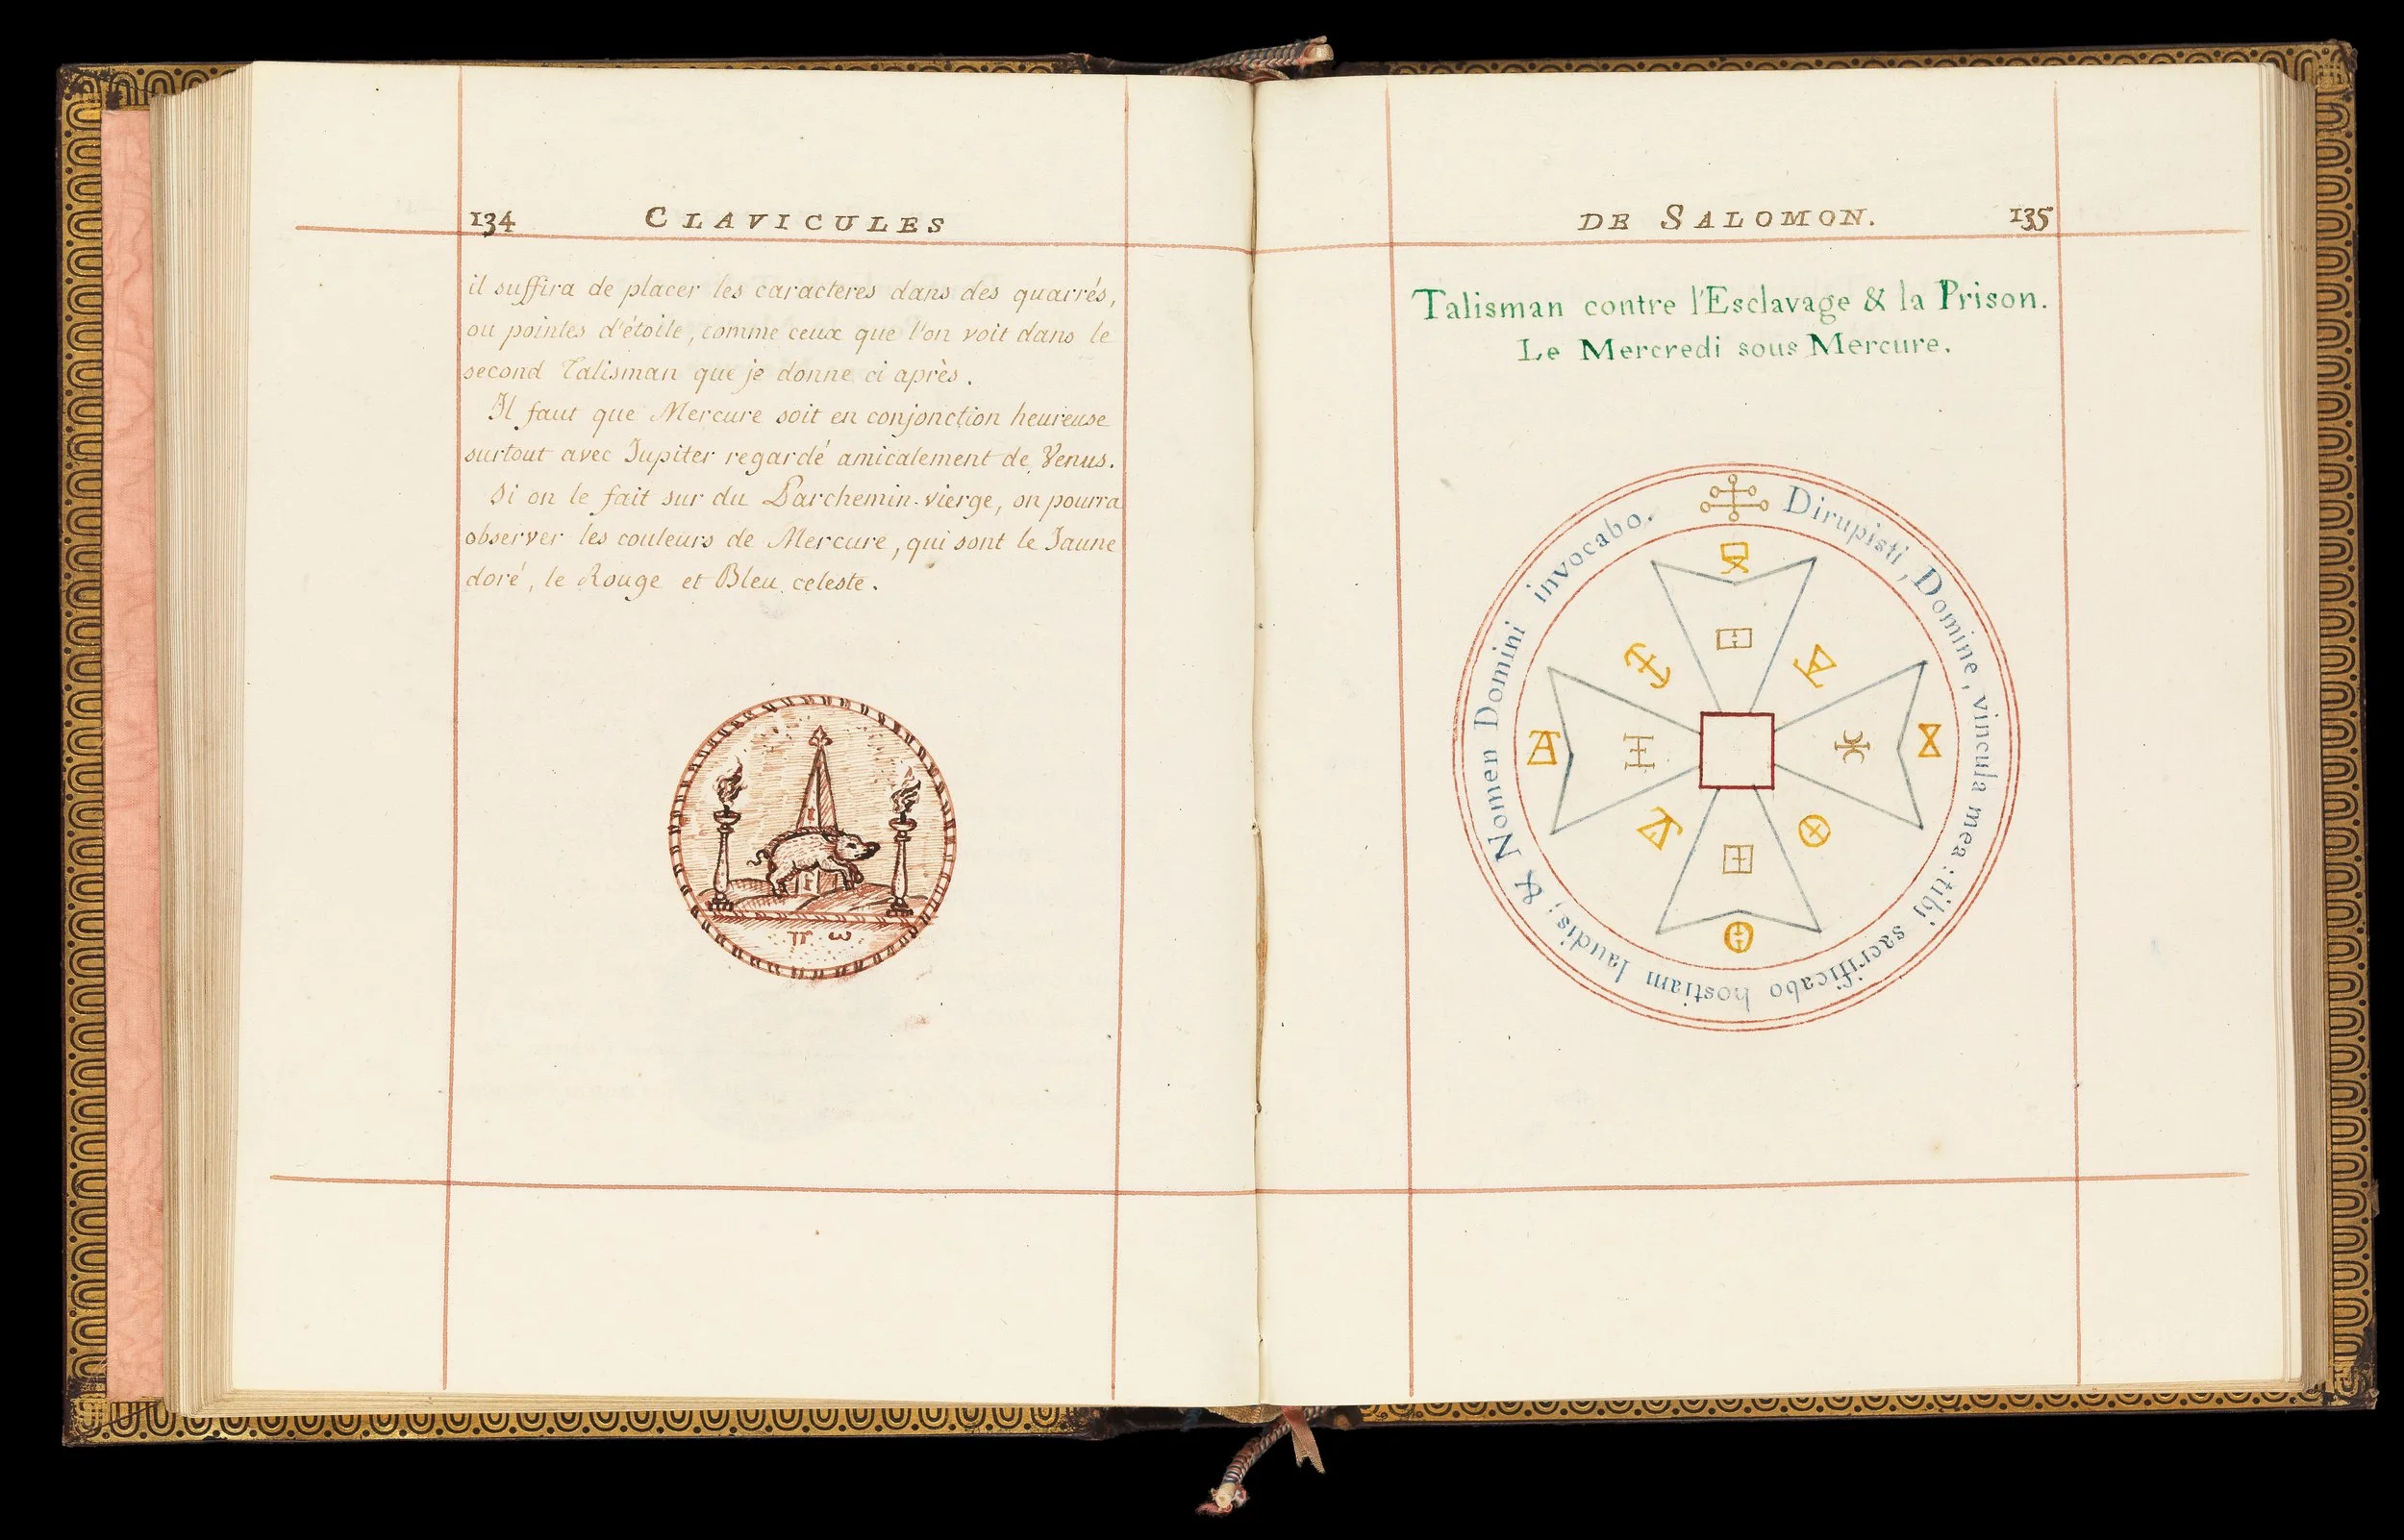 134 CLAVICULES
il suffira de placer les caracteres dans des quarrés,
ou pointes d'étoile, comme ceux que l'on voit dans le
second Talisman que je donne ci après.
Il faut que Mercure soit en conjonction heureuse
surtout avec Jupiter regardé amicalement de Venus.
Si on le fait sur du Parchemin-vierge, on pourra
observer les couleurs de Mercure, qui sont le Jaune
doré, le Rouge et Bleu celeste.
DE SALOMON. 135
Talisman contre l'Esclavage & la Prison.
Le Mercredi sous Mercure.
Dirupisti, Domine, vincula mea: tibj sacrificabo hostiam laudis; & Nomen Domini invocabo.